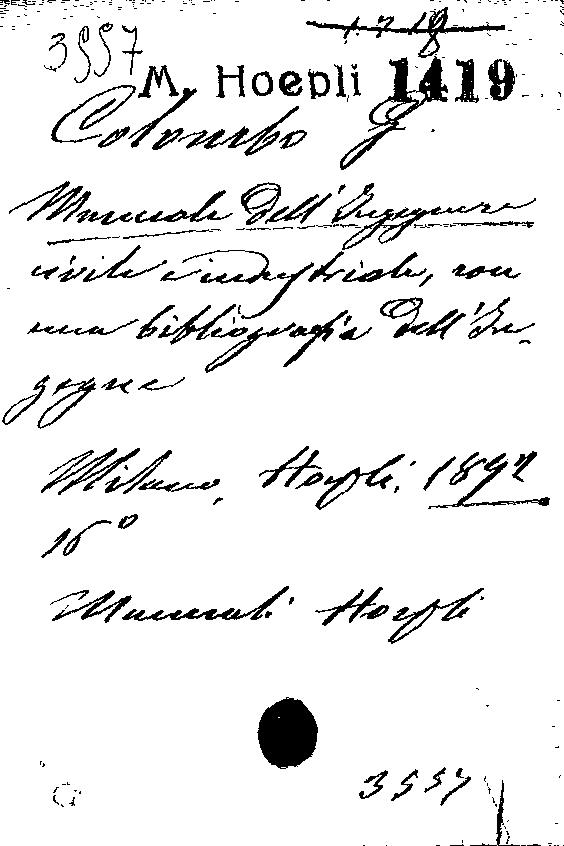 3557
1718
M. Hoepli 1419
Colombo G.
Manuale dell'Ingegnere
civile e industriale, con
una bibliografia dell'In-
gegne
Milano, Hoepli, 1892
16°
Manuali Hoepli
3557